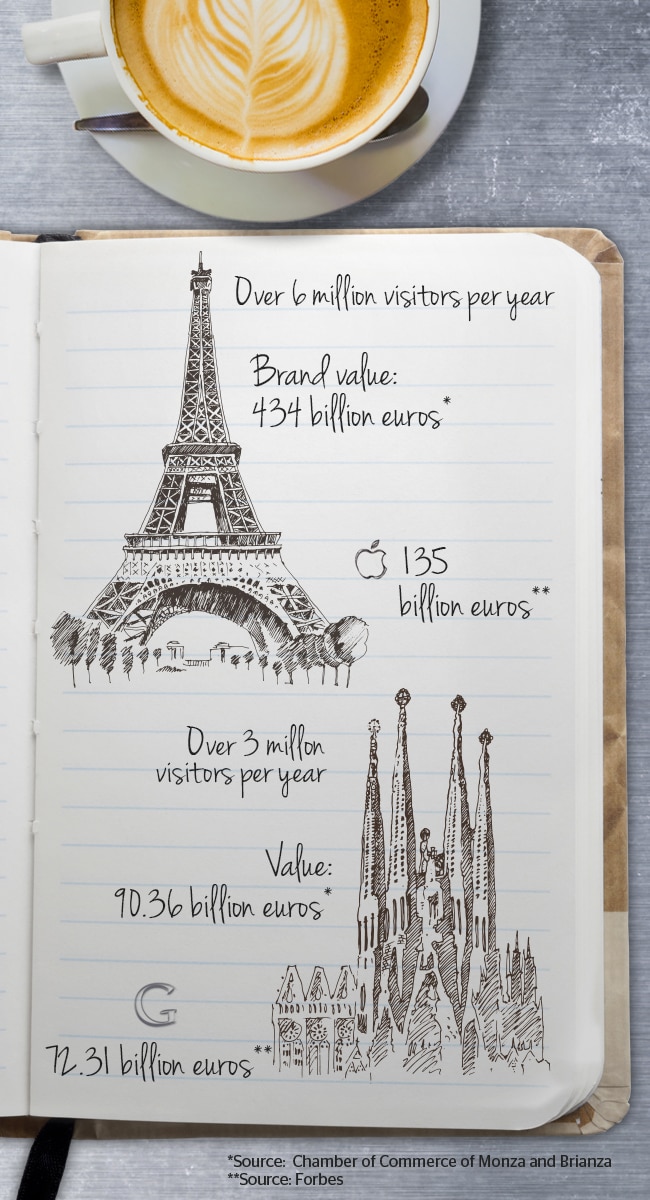 Over 6 million visitors per year
Brand value:
434 billion euros*
135
billion euros**
Over 3 millon
visitors per year
Value:
90.36 billion euros*
G
72.31 billion euros**
*Source: Chamber of Commerce of Monza and Brianza
**Source: Forbes